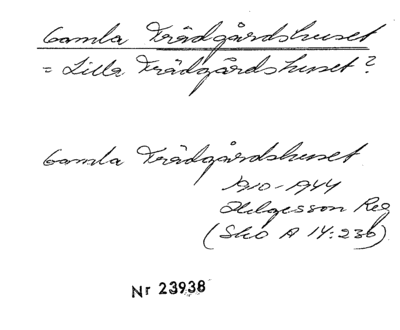 Gamla Trädgårdshuset
= Lilla Trädgårdshuset?
Gamla Trädgårdshuset
1910-1944
Helgesson Reg
(Sko A 14:236)
Nr 23938